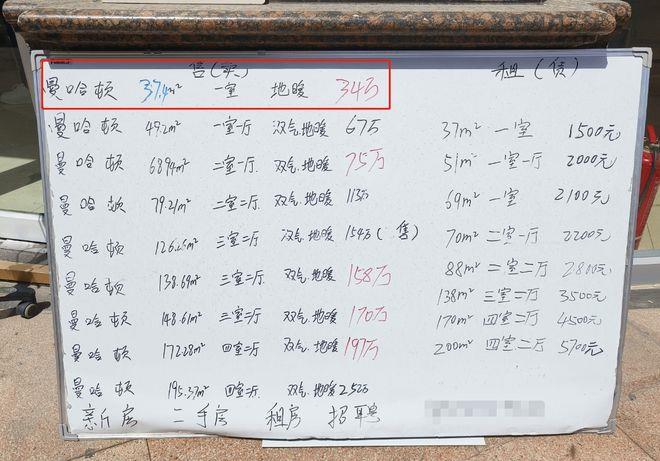 售(卖)
曼哈顿 37.4m² 一室 地暖 34万
曼哈顿 49.2m² 一室一厅 双气.地暖 67万
曼哈顿 68.94m² 二室一厅 双气.地暖 75万
曼哈顿 79.21m² 二室二厅. 双气.地暖 113万
曼哈顿 126.25m² 三室二厅 双气地暖 154万(售)
曼哈顿 138.69m² 三室二厅 双气地暖 158万
曼哈顿 148.61m² 三室二厅 双气.地暖 170万
曼哈顿 172.28m² 四室二厅 双气.地暖 197万
曼哈顿 195.37m² 四室二厅. 双气.地暖 252万
租(赁)
37m² 一室 1500元
51m² 一室一厅 2000元
69m² 一室 2100元
70m² 二室一厅 2200元
88m² 二室二厅 2800元
138m² 三室二厅 3500元
170m² 四室二厅 4500元
200m² 四室二厅 5700元
新房 二手房 租房 招聘